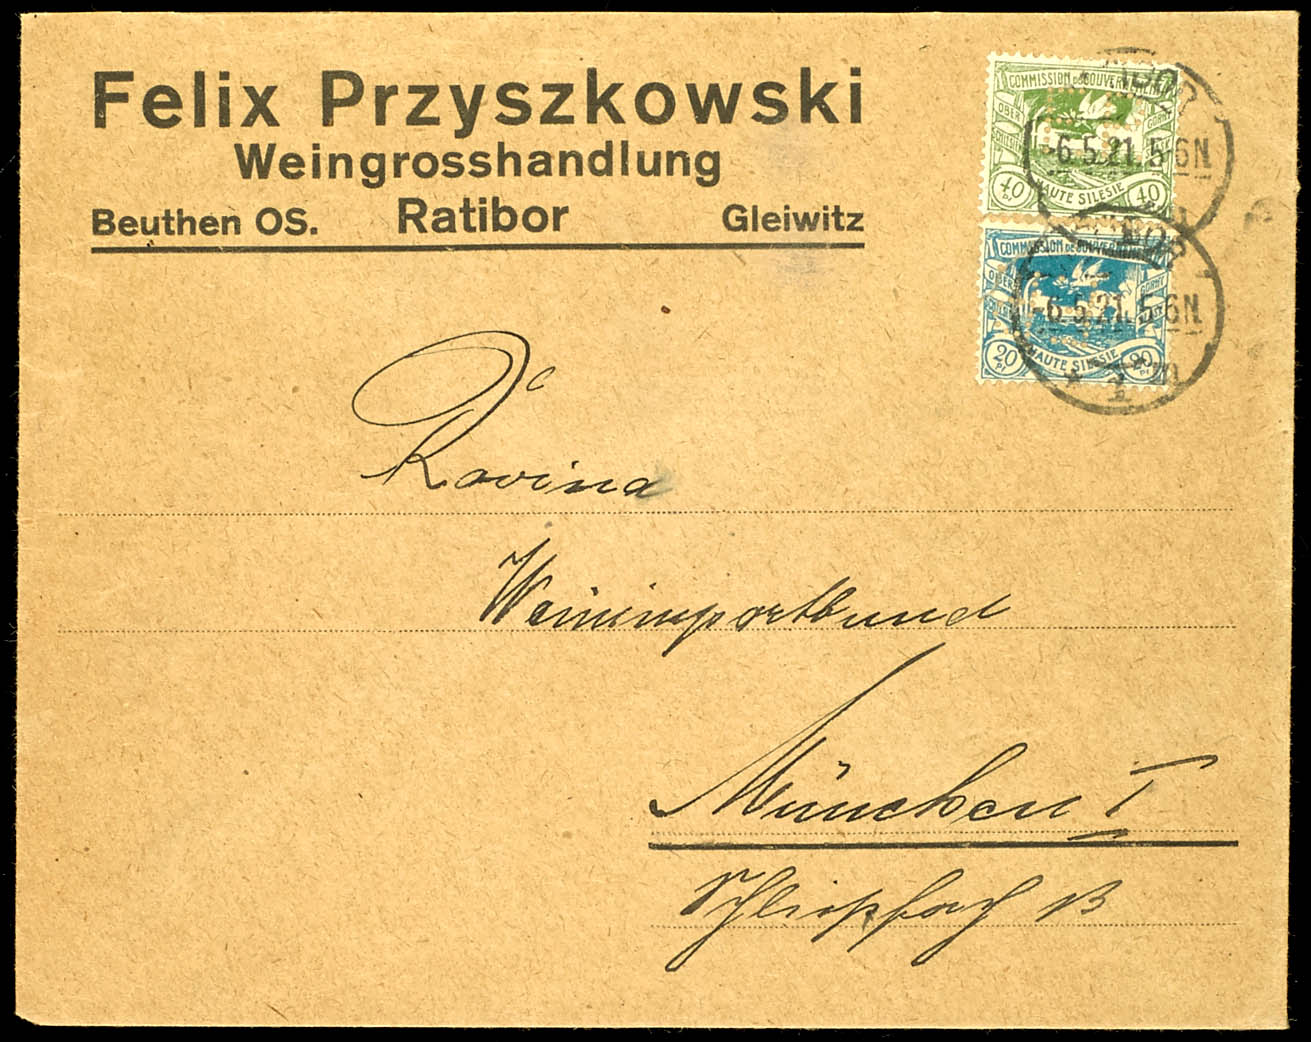 Felix Przyszkowski
Weingrosshandlung
Beuthen OS. Ratibor Gleiwitz
COMMISSION DE GOUVERNEMENT
OBER GORNY
40 HAUTE SILESIE 40
-6.5.21. 5-6N
COMMISSION DE GOUVERNEMENT
OBER GORNY
20 pf HAUTE SILESIE 20 pf
-6.5.21. 5-6N
* 1
Ravina
Weinimportbund
München I
Schliessfach 13